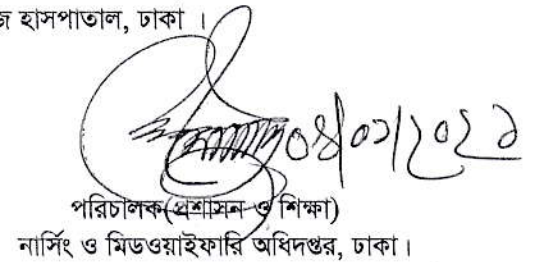 হাসপাতাল, ঢাকা ।
০৪/০১/২০২১
পরিচালক(প্রশাসন ও শিক্ষা)
নার্সিং ও মিডওয়াইফারি অধিদপ্তর, ঢাকা।